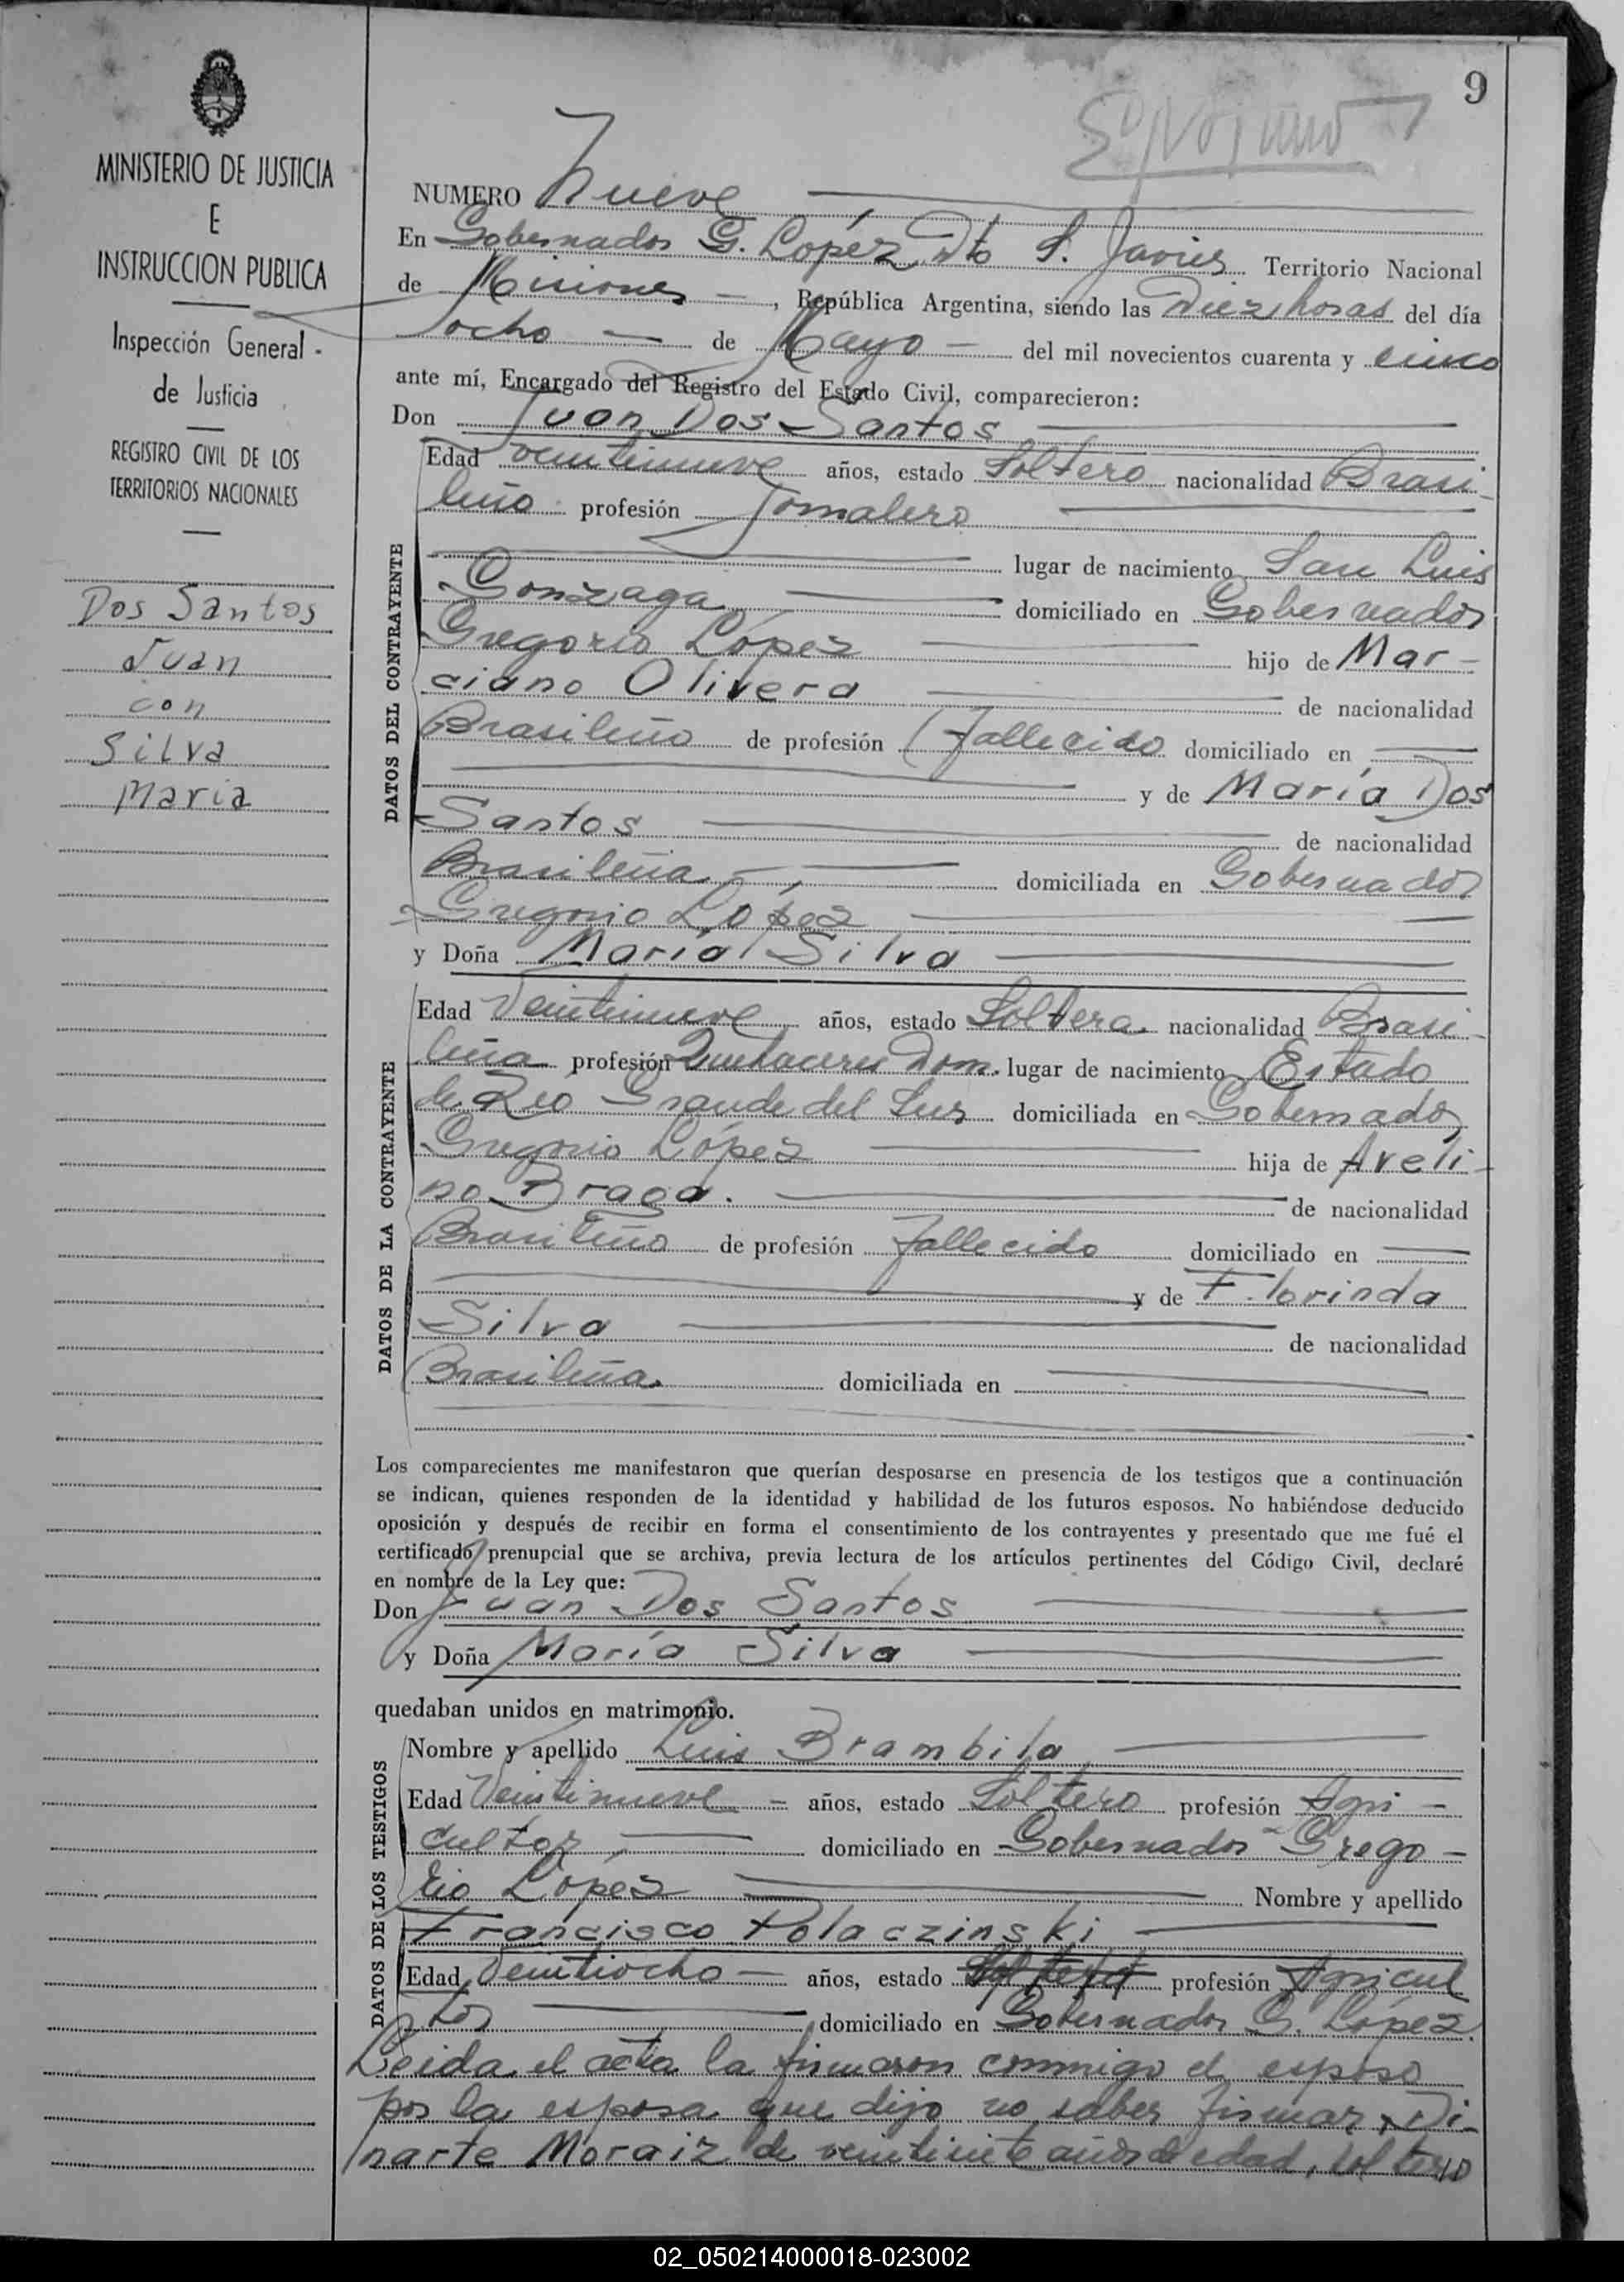 9
MINISTERIO DE JUSTICIA
E
INSTRUCCION PUBLICA
Inspección General
de Justicia
REGISTRO CIVIL DE LOS
TERRITORIOS NACIONALES
Dos Santos
Juan
con
Silva
Maria
NUMERO Nueve
En Gobernador G. López Dto S. Javier Territorio Nacional
de Misiones, República Argentina, siendo las Diez horas del día
ocho de Mayo del mil novecientos cuarenta y cinco
ante mí, Encargado del Registro del Estado Civil, comparecieron:
Don Juan Dos Santos
DATOS DEL CONTRAYENTE
Edad veintinueve años, estado Soltero nacionalidad Brasi-
leño profesión Jornalero
lugar de nacimiento San Luis
Gonzaga domiciliado en Gobernador
Gregorio López hijo de Mar-
ciano Olivera de nacionalidad
Brasileño de profesión Fallecido domiciliado en
y de María Dos
Santos de nacionalidad
Brasileña domiciliada en Gobernador
Gregorio López
y Doña María Silva
DATOS DE LA CONTRAYENTE
Edad Veintinueve años, estado Soltera nacionalidad Brasi-
leña profesión Quehaceres Dom. lugar de nacimiento Estado
de Rio Grande del Sur domiciliada en Gobernador
Gregorio López hija de Aveli-
no Braga. de nacionalidad
Brasileño de profesión Fallecido domiciliado en
y de Florinda
Silva de nacionalidad
Brasileña. domiciliada en
Los comparecientes me manifestaron que querían desposarse en presencia de los testigos que a continuación
se indican, quienes responden de la identidad y habilidad de los futuros esposos. No habiéndose deducido
oposición y después de recibir en forma el consentimiento de los contrayentes y presentado que me fué el
certificado prenupcial que se archiva, previa lectura de los artículos pertinentes del Código Civil, declaré
en nombre de la Ley que:
Don Juan Dos Santos
y Doña María Silva
quedaban unidos en matrimonio.
DATOS DE LOS TESTIGOS
Nombre y apellido Luis Brambila
Edad Veintinueve años, estado Soltero profesión Agri-
cultor domiciliado en Gobernador Grego-
rio López Nombre y apellido
Francisco Polaczinski
Edad Veintiocho años, estado Soltero profesión Agricul
tor domiciliado en Gobernador G. López.
Leida el acta la firmaron conmigo el esposo
por la esposa que dijo no saber firmar, Di-
narte Moraiz de veintisiete años de edad, soltero
02_050214000018-023002